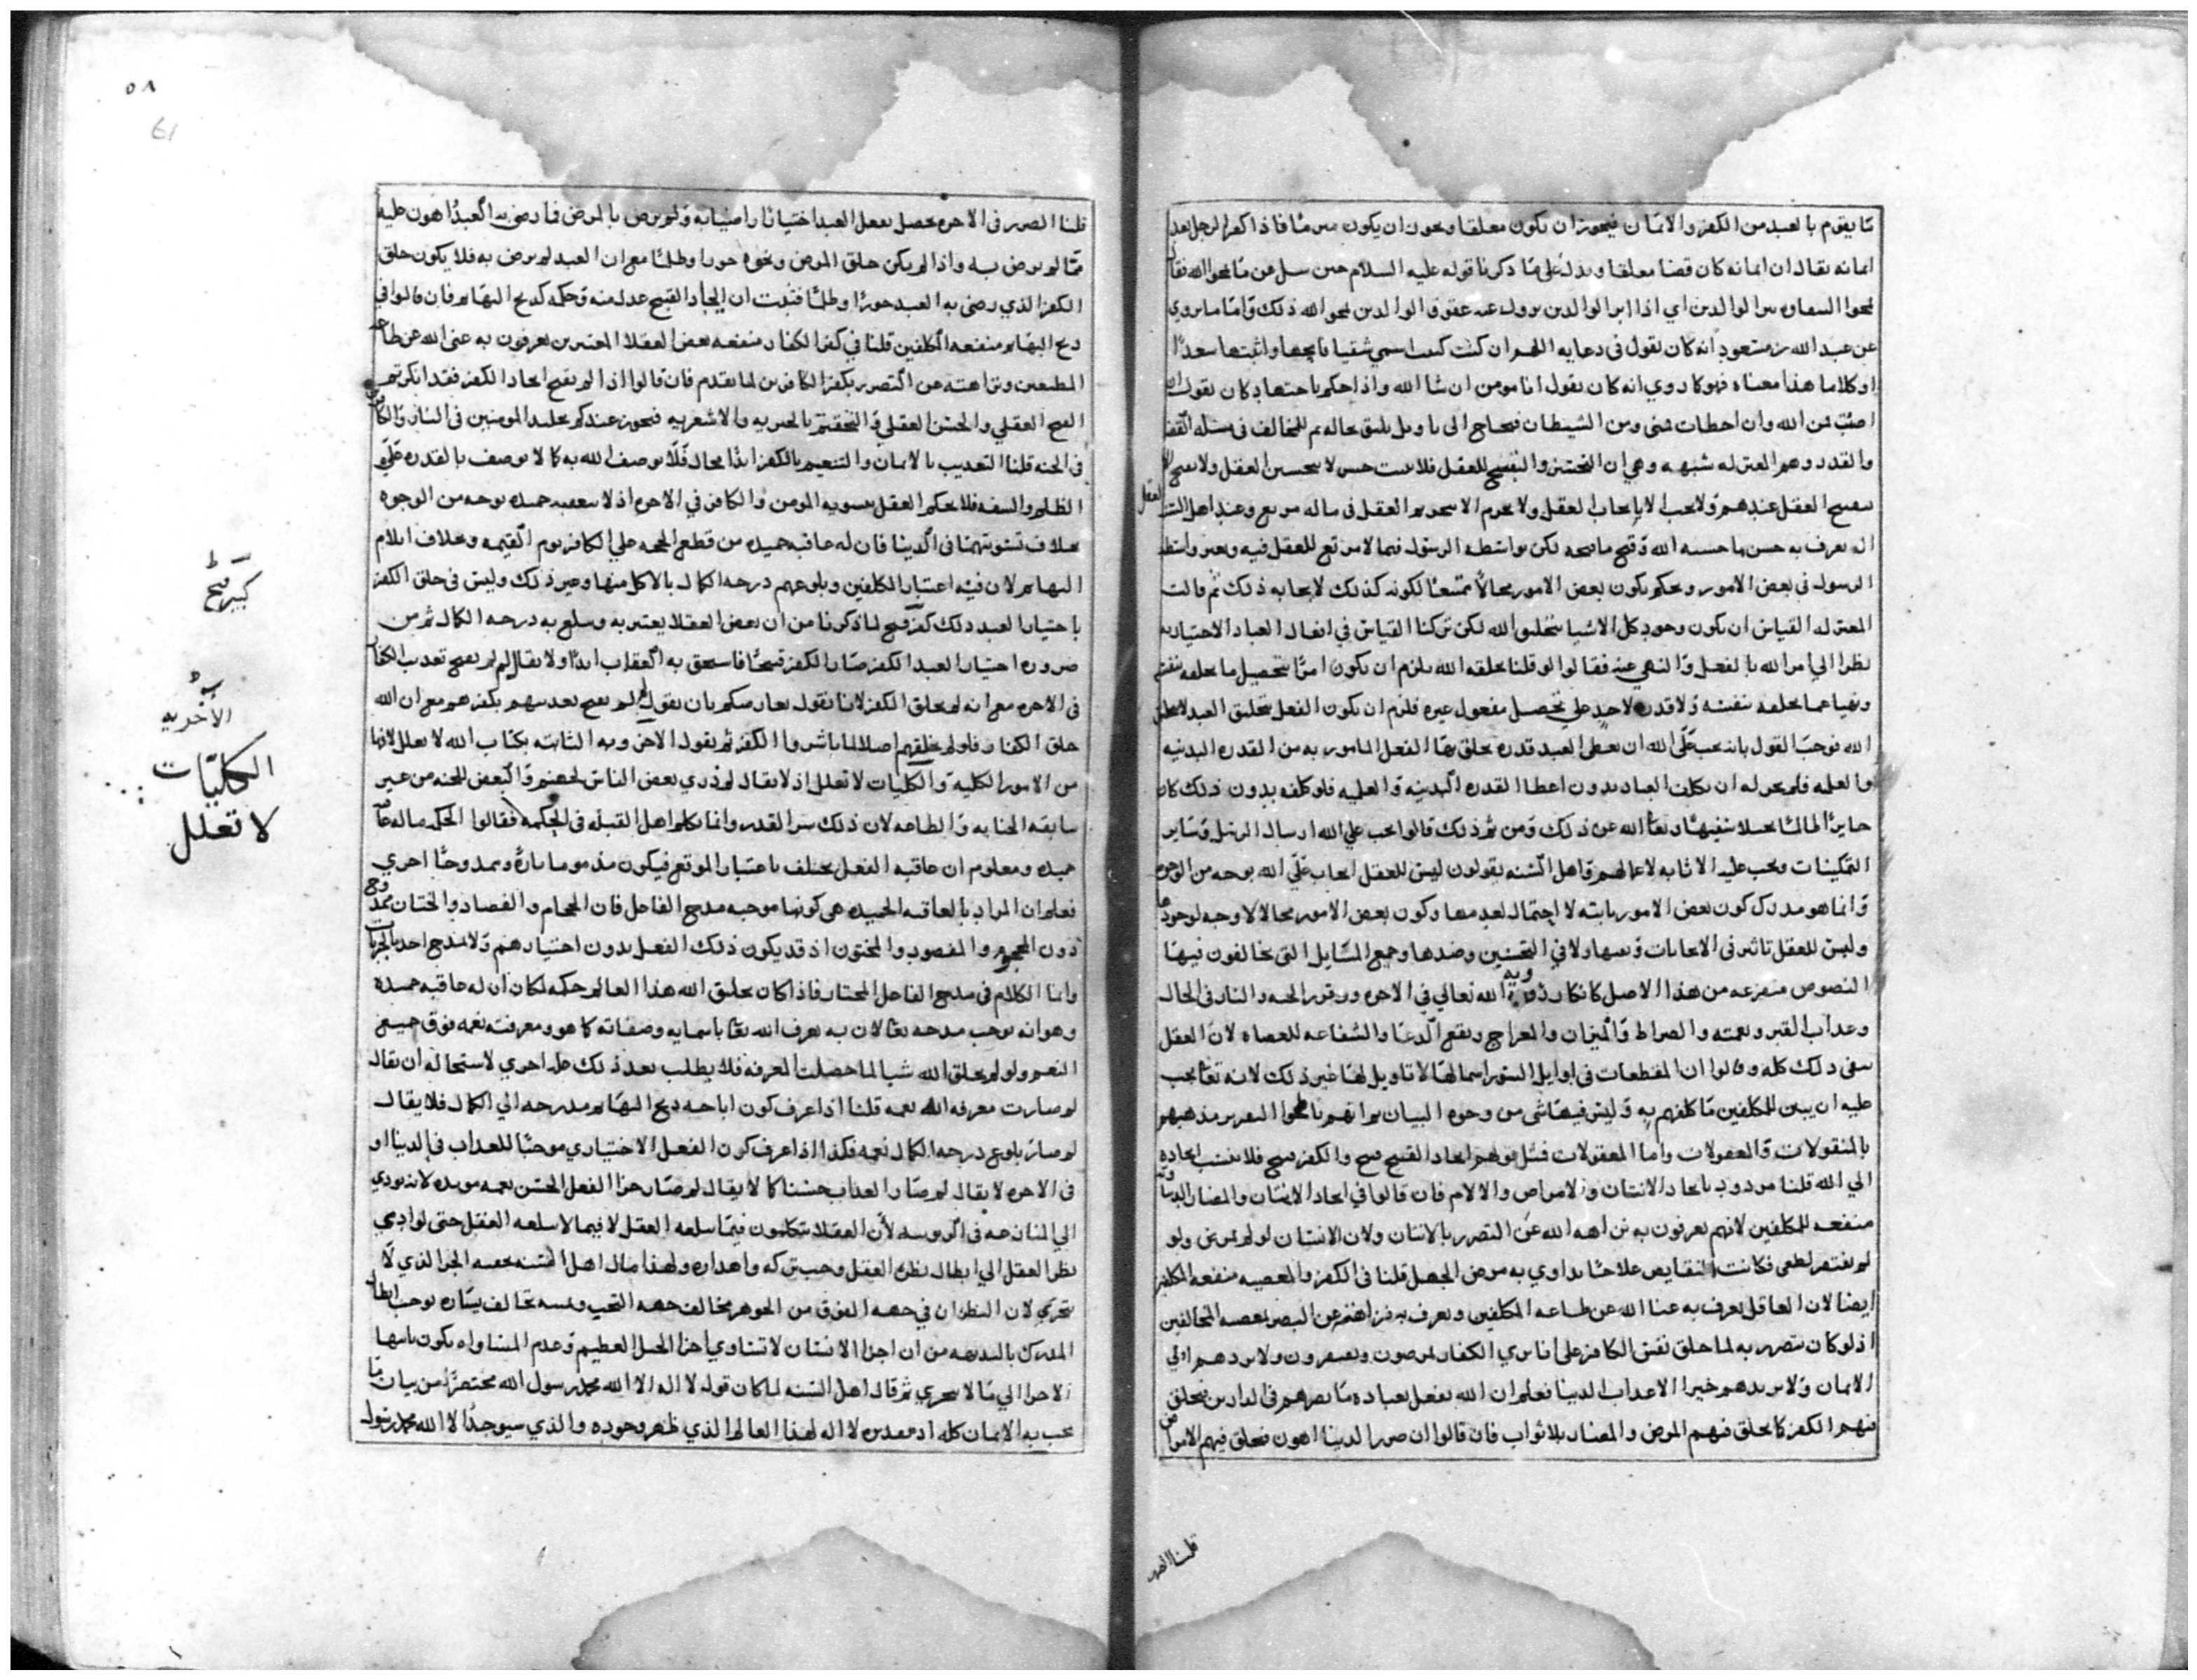 ما يقوم بالعبد من الكفر والايمان فيجوز ان يكون معلقا ويجوز ان يكون مبرما فاذا كفر الرجل بعد
ايمانه يقال ان ايمانه كان قضا معلقا ويدل على ما ذكرنا قوله عليه السلام حين سل عن ما يمحو الله فقال
يمحوا السعاوه الوالدين اي اذا ابر الوالدين يزول عنه عقوق الوالدين يمحو الله ذلك واما ما يروي
عن عبد الله بن مسعود انه كان يقول في دعايه اللهم ان كنت كتبت اسمي شقيا فامحها واثبتها سعدا
او كلاما هذا معناه فهو كما روي انه كان يقول انا مومن ان شا الله واذا حكم باجتهاد كان يقول ان
اصبت فمن الله وان اخطات فمني ومن الشيطان فيحتاج الى تاويل يليق بحاله ثم للمخالف في مسئله القضا
والقدر وهم المعتزله شبهه وهي ان التحسين والتقبيح للعقل فلا حسن لا بتحسين العقل ولا قبيح الا
بتقبيح العقل عندهم ولا يجب الا بايجاب العقل ولا يحرم الا بتحريم العقل في ما له مرتع وعند اهل السنه العقل
اله يعرف به حسن ما حسنه الله وقبح ما قبحه لكن بواسطه الرسول فيما لا مرتع للعقل فيه وبغير واسطه
الرسول في بعض الامور ويحكم بكون بعض الامور محالا ممتنعا لكونه كذلك لا بايجابه ذلك ثم قالت
المعتزله القياس ان يكون وجود كل الاشيا بتخليق الله لكن تركنا القياس في افعال العباد الاختياريه
نظرا الي امر الله بالفعل والنهي عنه فقالوا لو قلنا بخلقه الله يلزم ان يكون امرا بتحصيل ما يخلقه بنفسه
ونهيا عما يخلقه بنفسه ولا قدره لاحد علي تحصيل مفعول غيره فلزم ان يكون الفعل بتخليق العبد لا بتخليق
الله فوجب القول بانه يجب على الله ان يعطي العبد قدره يخلق بها الفعل المامور به من القدره البدنيه
والعلميه فلم يجز له ان يكلف العباد بدون اعطا القدره البدنيه والعلميه فلو كلفه بدون ذلك كان
جايرا ظالما بخيلا سفيها تعالى الله عن ذلك ومن ثم ذلك قالوا يجب علي الله ارسال الرسل وساير
التمكينات ويجب عليه الاثابه لاعمالهم واهل السنه يقولون ليس للعقل ايجاب على الله بوجه من الوجوه
وانما هو مدرك كون بعض الامور ثابته لا احتمال لعدمها وكون بعض الامور محالا لا وجه لوجودها
وليس للعقل تاثير في الايجابات ونفيها ولا في التحسين وضدها وجميع المسايل التي يخالفون فيها
النصوص متفرعه من هذا الاصل كانكار رؤية الله تعالي في الاخره ووقوع الجنه والنار في الحال
وعذاب القبر ونعمته والصراط والميزان والمعراج ونفع الدعا والشفاعه للعصاه لان العقل
ينفي ذلك كله وقالوا ان المقطعات في اوايل السور اسما لها لا تاويل لها غير ذلك لانه تعالى يجب
عليه ان يبين للمكلفين ما كلفهم به وليس فيها شي من وجوه البيان ثم انهم تمحوا لتقرير مذهبهم
بالمنقولات والمعقولات واما المعقولات فمثل قولهم ايجاد القبيح قبيح والكفر قبيح فلا ينسب ايجاده
الي الله قلنا مردود بايجاد الانسان والامراض والالام فان قالوا في ايجاد الانسان والمضار الدنياويه
منفعه للمكلفين لانهم يعرفون به نزاهه الله عن التضرر بالانسان ولان الانسان لو لم يمرض ولو
لم يفتقر لطغى فكانت النقايص علاجا يداوي به مرض الجهل قلنا في الكفر والمعصيه منفعه المكلفين
ايضا لان العاقل يعرف به غنا الله عن طاعه المكلفين ويعرف به نزاهته عن التضرر بمعصيه المخالفين
اذ لو كان يتضرر به لما خلق نفس الكافر علي انا نري الكفار يمرضون ويفتقرون ولا يردهم الي
الايمان ولا يزيدهم خيرا الا عذاب الدنيا فعلم ان الله يفعل بعباده ما يضرهم في الدارين فيخلق
فيهم الكفر كما يخلق فيهم المرض والمضار بلا ثواب فان قالوا ان ضرر الدنيا اهون فيخلق فيهم الامراض
قلنا الضرر
٥٨
61
قلنا الضرر في الاخره يحصل بفعل العبد اختيارا راضيا به ولم يرض بالمرض فما رضي به العبد اهون عليه
مما لم يرض به واذا لم يكن خلق المرض ونحوه جورا وظلما مع ان العبد لم يرض به فلا يكون خلق
الكفر الذي رضي به العبد جورا وظلما فثبت ان ايجاد القبيح عدل منه وحكمه كذبح البهايم فان قالوا في
ذبح البهايم منفعه المكلفين قلنا في كفر الكفار منفعه بعض العقلا المعتبرين يعرفون به غنى الله عن طاعه
المطيعين ونزاهته عن التضرر بكفر الكافرين لما تقدم فان قالوا اذا لم يقبح ايجاد الكفر فقد انكرتم
القبح العقلي والحسن العقلي والتحقتم بالجبريه والاشعريه فيجوز عندكم تخليد المومنين في النار والكافرين
في الجنه قلنا التعذيب بالايمان والتنعيم بالكفر ابدا محال فلا يوصف الله به كما لا يوصف بالقدره على
الظلم والسفه فلا يحكم العقل بتسويه المومن والكافر في الاخره اذ لا يتعقبه حميده بوجه من الوجوه
بخلاف تسويتهما في الدنيا فان له عاقبه حميده من قطع الحجه علي الكافر يوم القيمه وبخلاف ايلام
البهايم لان فيه اعتبار المكلفين وبلوغهم درجه الكمال بالاكل منها وغير ذلك وليس في خلق الكفر
باختيار العبد ذلك كفر قبيح لما ذكرنا من ان بعض العقلا يعتبر به ويبلغ به درجه الكمال ثم من
ضروره اختيار العبد الكفر صار الكفر قبيحا فاستحق به العقاب ابدا ولا يقال لم لم يقبح تعذيب الكفار
في الاخره مع انه لم يخلق الكفر لانا نقول نعارضكم بان نقول لم لم يقبح تعذيبهم بكفرهم مع ان الله
خلق الكفار فلو لم يخلقهم اصلا لما باشروا الكفر ثم نقول الاخرويه الثابته بكتاب الله لا تعلل لانها
من الامور الكليه والكليات لا تعلل اذ لا يقال لم ذري بعض الناس لجهنم والبعض للجنه من غير
سابقه الجنايه والطاعه لان ذلك سر القدر وانما تكلم اهل القبله في الحكمه فقالوا الحكمه ما له عاقبه
حميده ومعلوم ان عاقبه الفعل يختلف باعتبار الموقع فيكون مذموما تاره وممدوحا اخري
فعلم ان المراد بالعاقبه الحميده هي كونها موجبه مدح الفاعل فان الحجام والفصاد والختان ممدوح
دون المحجوم والمفصود والمختون اذ قد يكون ذلك الفعل بدون اختيارهم ولا يمدح احد بالجبريات
وانما الكلام في مدح الفاعل المختار فاذا كان تخليق الله هذا العالم حكمه لمكان ان له عاقبه حميده
وهو انه يوجب مدحه تعالى لان به يعرف الله تعالى باسمايه وصفاته كما هو ومعرفته نعمه فوق جميع
النعم ولو لم يخلق الله شيا لما حصلت المعرفه فلا يطلب بعد ذلك عله اخري لاستحاله ان يقال
لم صارت معرفه الله نعمه قلنا اذا عرف كون اباحه ذبح البهايم مدرجه الي الكمال فلا يقال
لم صار بلوغ درجه الكمال نعمه فكذا اذا عرف كون الفعل الاختياري موجبا للعذاب في الدنيا او
في الاخره لا يقال لم صار العذاب حسنا كما لا يقال لم صار جزا الفعل الحسن نعمه موبده لانه يودي
الي المنازعه في الربوبيه لان العقلا يتكلمون فيما يبلغه العقل لا فيما لا يبلغه العقل حتى لو ادي
نظر العقل الي ابطال نظر العقل وجب تركه واهداره ولهذا قال اهل السنه بحقيه الجزا الذي لا
يتجزي لان النظر ان في جهه الفوق من الجوهر مخالف جهه التحت ويمينه تخالف يساره يوجب ابطال
المدرك بالبديهه من ان اجزا الانسان لا تساوي اجزا الجبل العظيم وعدم المساواه يكون بانتها
الاجزا الي ما لا يتجزي ثم قال اهل السنه لما كان قوله لا اله الا الله محمد رسول الله مختصرا من بيان ما
يجب به الايمان كله اذ تقديره لا اله لهذا العالم الذي ظهر وجوده والذي سيوجد الا الله محمد رسول
الاخرويه
الكليات
لا تعلل